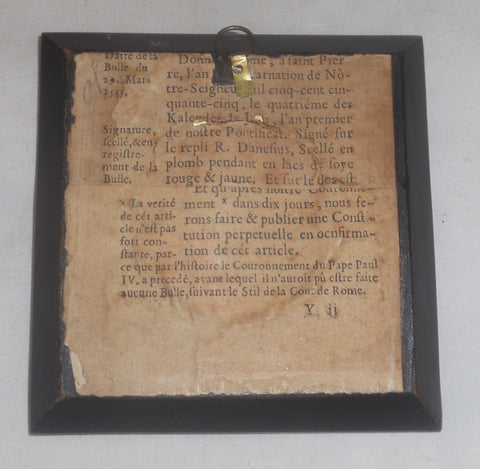 Datte de la
Bulle du
29. Mars
1555.
Signature,
scellé, & en-
registre-
ment de la
Bulle.
Donné Rome, à saint Pier-
re, l'an Incarnation de Nô-
tre-Seigneur mil cinq-cent cin-
quante-cinq, le quatriéme des
Kalendes de l'an premier
de nostre Pontificat. Signé sur
le repli R. Danesius, Scellé en
plomb pendant en lacs de soye
rouge & jaune. Et sur le dos est
Et qu'après nôtre Couronne-
ment * dans dix jours, nous fe-
rons faire & publier une Consti-
tution perpetuelle en ocnfirma-
tion de cét article.
* La verité
de cét arti-
cle n'est pas
fort con-
stante, par-
ce que par l'histoire le Couronnement du Pape Paul
IV. a precedé, avant lequel il n'auroit pû estre faite
aucune Bulle, suivant le Stil de la Cour de Rome.
Y ij